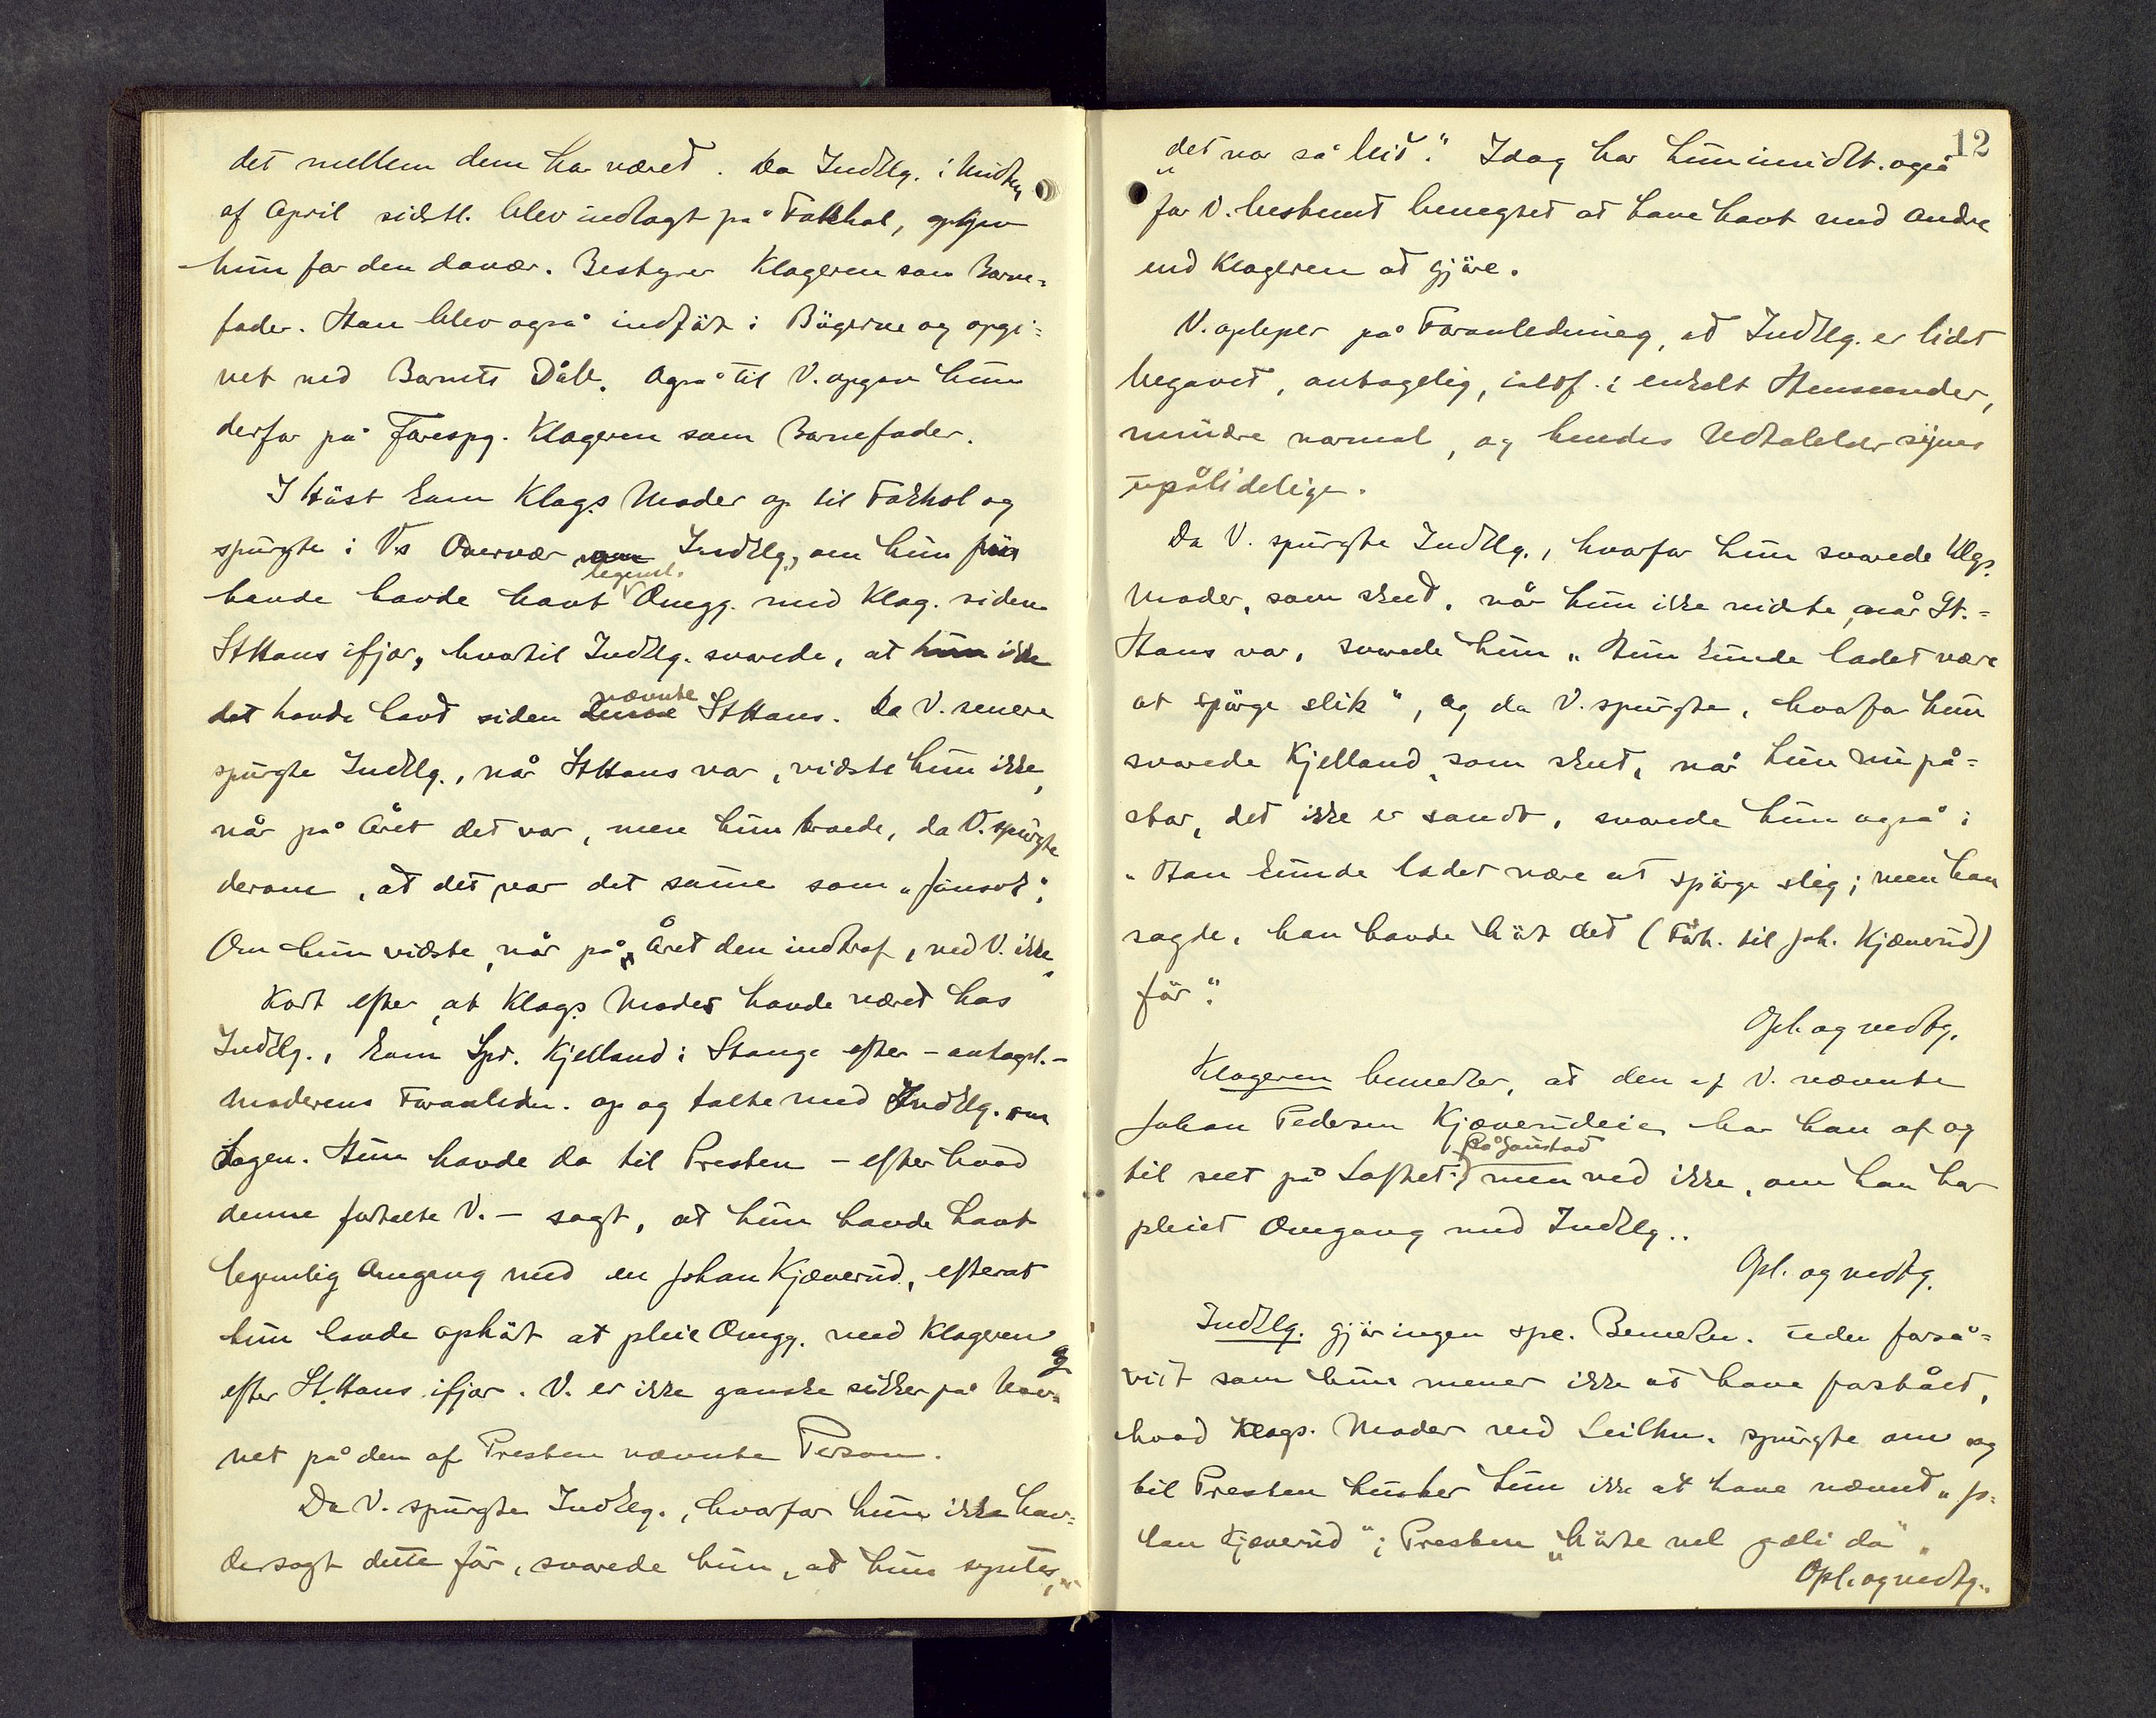 det mellem dem har været. Da Indklg. i Midten
af April sidstl. blev indlagt på Fakkhol, opgav
hun for den davær. Bestyrer Klageren som Barne=
fader. Han blev også indført i Bøgerne og opgi=
vet ved Barnets Dåb. Også til V. opgav hun
derfor på Forespg. Klageren som Barnefader.
I Høst kom Klags. Moder op til Fakhol og
spurgte i V.s Overvær om Indklg., om hun
legeml.
havde havt Omgg. med Klag. siden
StHans ifjor, hvortil Indklg. svarede, at hun ikke
nævnte
det havde havt siden denne StHans. Da V. senere
spurgte Indklg., når StHans var, vidste hun ikke,
når på Året det var, men hun troede, da V. spurgte
derom, at det var det samme som „Jonsok".
Om hun vidste, når på Året den indtraf, ved V. ikke.
Kort efter, at Klags. Moder havde været hos
Indklg., kom Spr. Kjelland i Stange efter – antagel. –
Moderens Foranledn. op og talte med Indklg. om
Sagen. Hun havde da til Presten – efter hvad
denne fortalte V. – sagt, at hun havde havt
legemlig Omgang med en Johan Kjæverud, efterat
hun havde ophørt at pleie Omgg. med Klageren
efter St.Hans ifjor. V. er ikke ganske sikker på Nav=
net på den af Presten nævnte Person.
Da V. spurgte Indklg., hvorfor hun ikke hav=
de sagt dette før, svarede hun, at hun syntes,
12
„det var så leit". Idag har hun imidlt. også
for V. bestemt benegtet at have havt med andre
end Klageren at gjøre.
V. oplyser på Foranledning, at Indklg. er lidet
begavet, antagelig, ialdf. i enkelt Henseender,
mindre normal, og hendes Udtalelser synes
upålidelige.
Da V. spurgte Indklg., hvorfor hun svarede Klgs.
Moder, som skeet, når hun ikke vidste, når St.=
Hans var, svarede hun „Hun kunde ladet være
at spørge slik", og da V. spurgte, hvorfor hun
svarede Kjelland, som skeet, når hun nu på=
står, det ikke er sandt, svarede hun også:
„Han kunde ladet være at spørge slig; men han
sagde, han havde hørt det (Forh. til Joh. Kjæverud)
før".
Opl. og vedtg.
Klageren bemerker, at den af V. nævnte
Johan Pedersen Kjæverudeie har han af og
på Jønstad
til seet på Loftet men ved ikke, om han har
pleiet Omgang med Indklg..
Opl. og vedtg.
Indklg. gjør ingen spe. Bemerkn. uden forså=
vidt som hun mener ikke at have forstået,
hvad Klags. Moder ved Leilhn. spurgte om og
til Presten husker hun ikke at have nævnt „Jo=
han Kjæverud"; Presten „hørte vel gali da".
Opl. og vedtg..